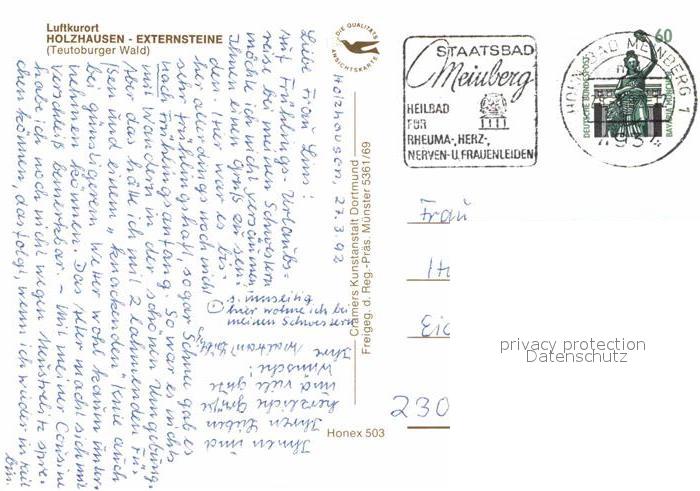 Luftkurort
HOLZHAUSEN - EXTERNSTEINE
(Teutoburger Wald)
DIE QUALITÄTS
ANSICHTSKARTE
Holzhausen, 27.3.92
Liebe Frau
mit Frühlings-Urlaubs-
bei meinen Schwestern
möchte ich nicht versäumen,
Ihnen einen Gruß zu sen-
den. Hier war es bis-
her allerdings noch nicht
sehr frühlingshaft, sogar Schnee gab es
nach Frühlingsanfang. So war es nichts
mit Wandern in der schönen Umgebung.
Aber das hätte ich mit 2 lahmenden Fü-
ßen und einem "knackenden" Knie auch
bei günstigerem Wetter wohl kaum unter-
nehmen können. Das Alter macht sich mit
Verschleiß bemerkbar. - Mit meiner Cousine
habe ich noch nicht wegen Neustrelitz spre-
chen können, das folgt, wenn ich wieder in Kiel
bin.
hier wohne ich bei
meinen Schwestern
Ihnen und
Ihren Lieben
herzliche Grüße
und viele gute
Wünsche!
Ihre Waltraut
Cramers Kunstanstalt Dortmund
Freigeg. d. Reg.-Präs. Münster 5361/69
Honex 503
STAATSBAD
Meinberg
HEILBAD
FÜR
RHEUMA-, HERZ-,
NERVEN- U. FRAUENLEIDEN
HORN-BAD MEINBERG 1
60
DEUTSCHE BUNDESPOST
BAVARIA MÜNCHEN
Frau
230
privacy protection
Datenschutz